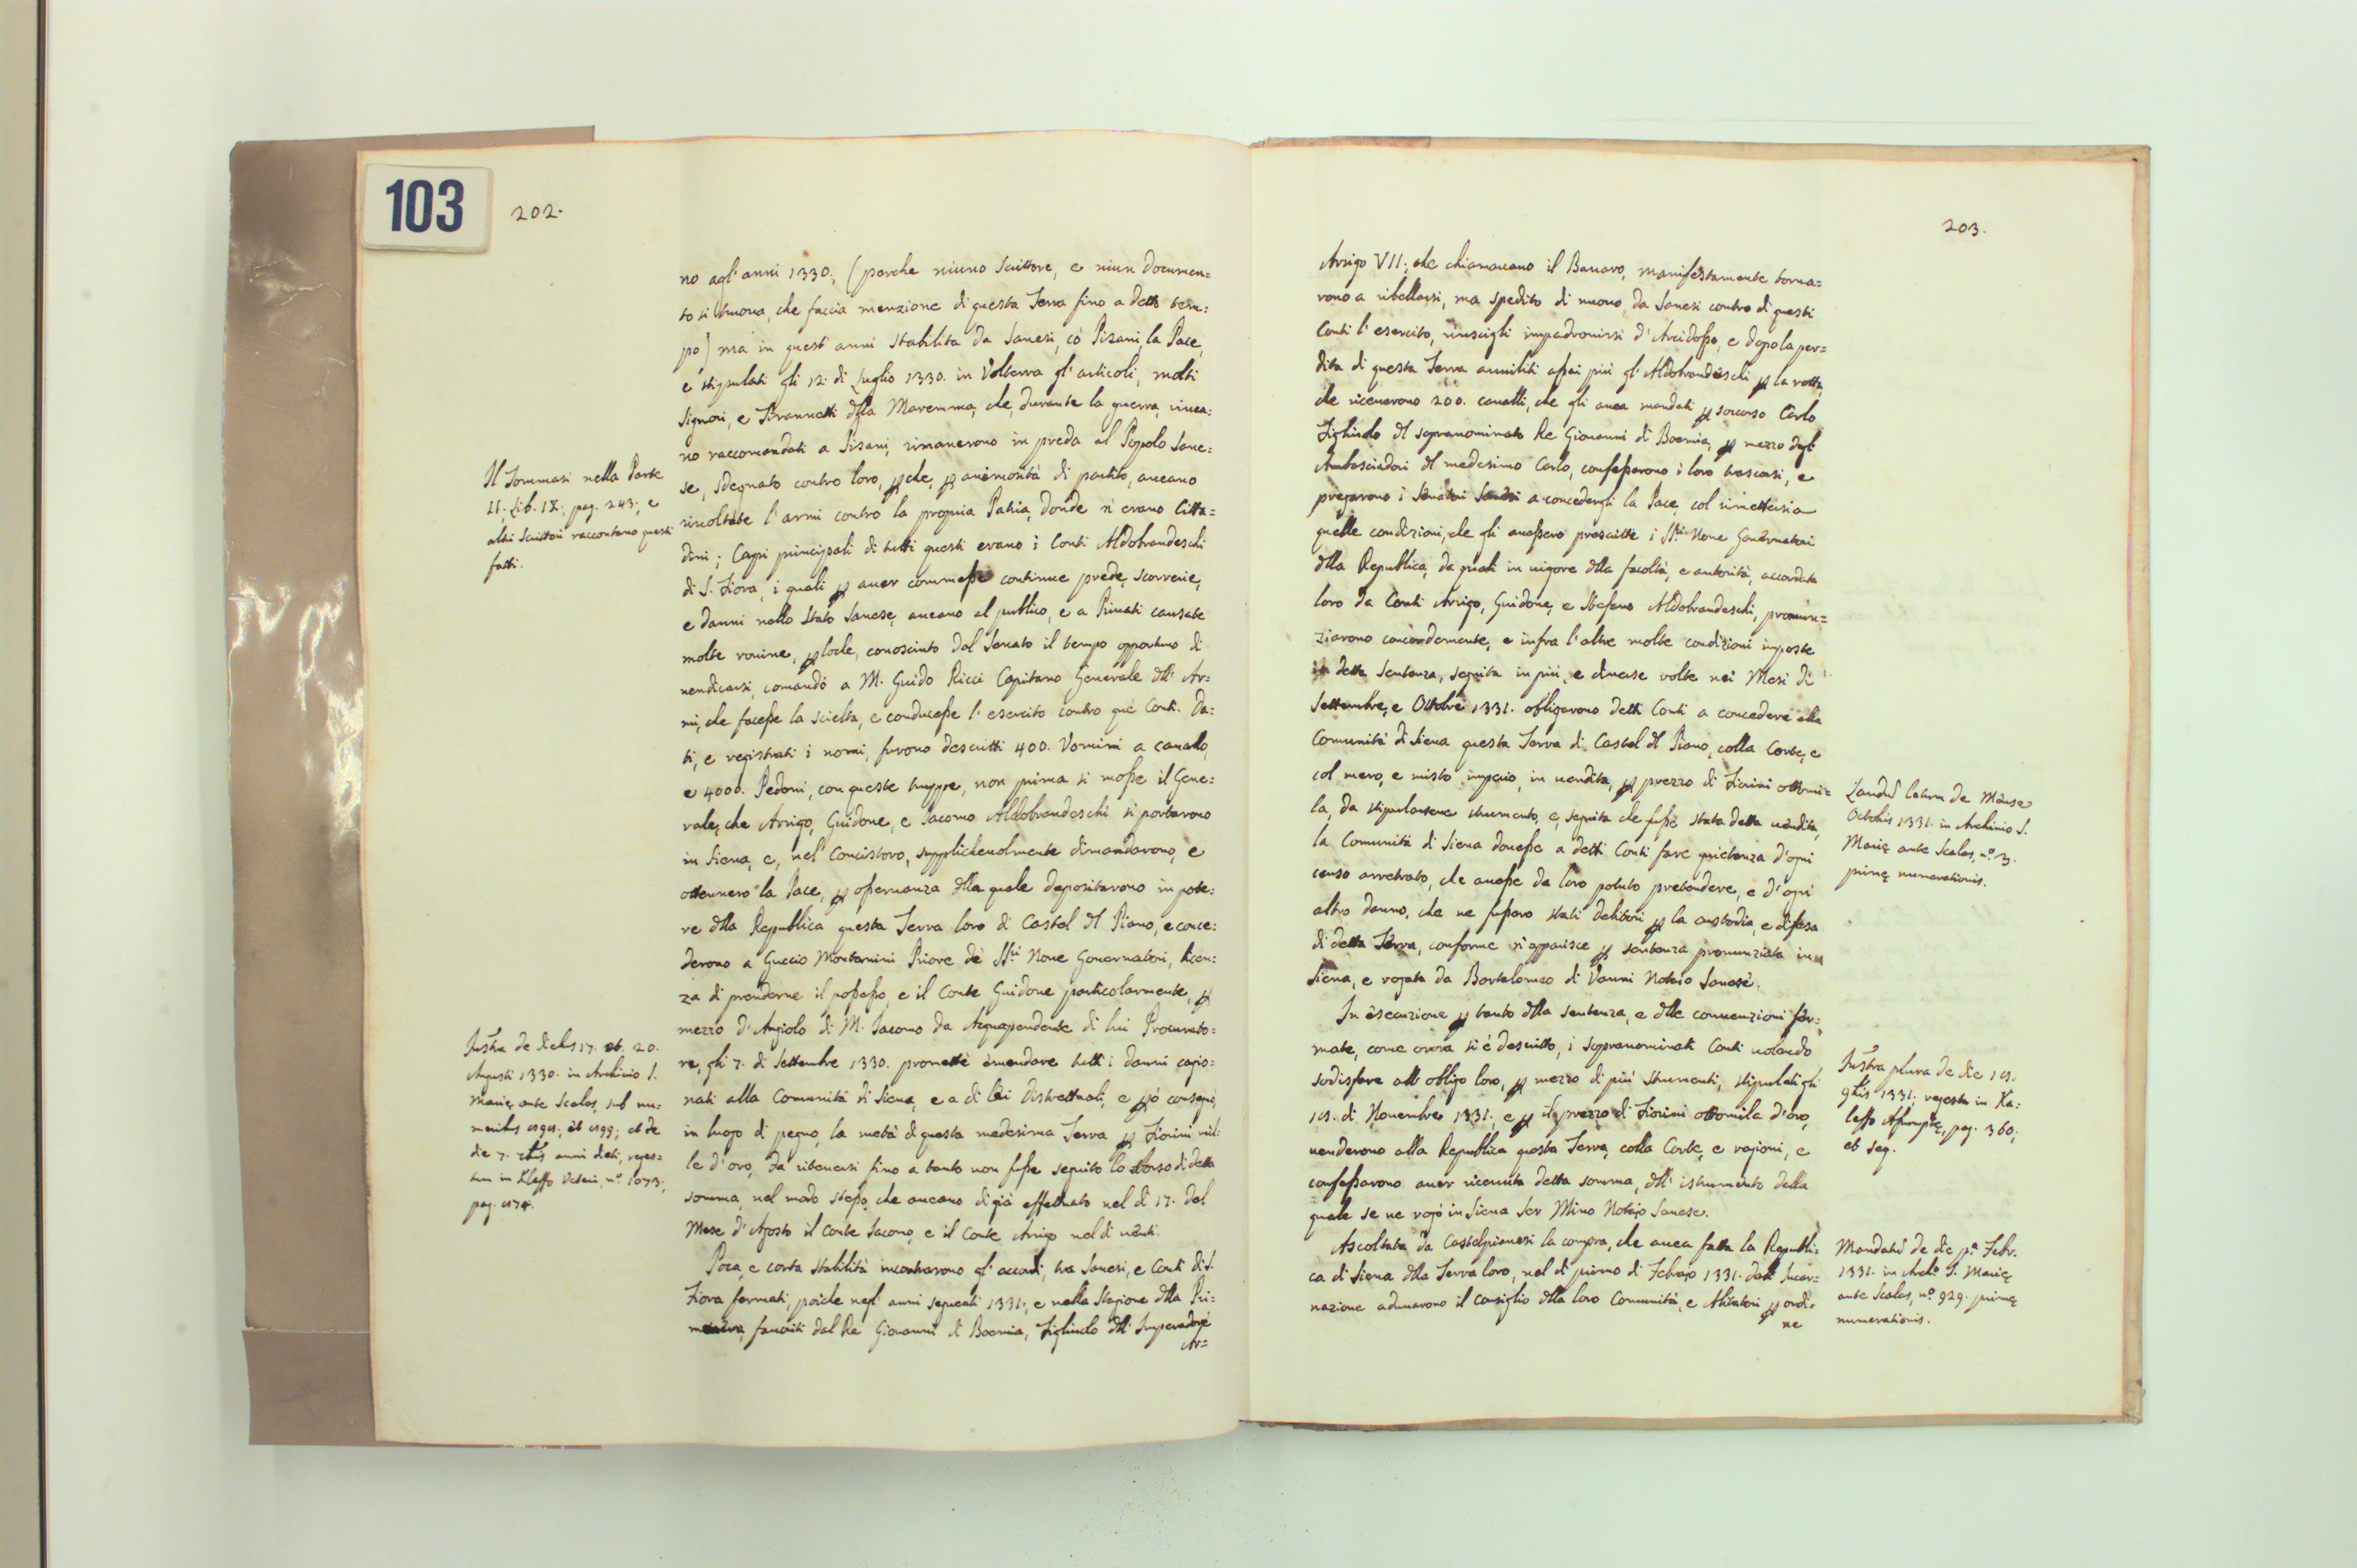 103
202.
no agl' anni 1330; (perche niuno Scrittore, e niun Documen=
to si truova, che faccia menzione di questa Terra fino a detto tem=
po) ma in quest' anni stabilita da Sanesi, cò Pisani, la Pace,
e stipulati gli 12. di Luglio 1330. in Volterra gl' articoli, molti
Signori, e Tirannetti dlla Maremma, che, durante la guerra, s'era=
no raccomandati a Pisani, rimanerono in preda al Popolo Sane=
se, sdegnato contro loro, pche, p animosità di partito, aveano
rivoltate l'armi contro la propria Patria, donde n' erano Citta=
dini; Capi principali di tutti questi erano i Conti Aldobrandeschi
di S. Fiora, i quali p aver commesse continue prede, scorrerie,
e danni nello Stato Sanese, aveano al publico, e a Privati causate
molte rovine, ploche, conosciuto dal Senato il tempo opportuno di
vendicarsi, comandò a M. Guido Ricci Capitano Generale dll' Ar=
mi, che facesse la scielta, e conducesse l' esercito contro què Conti. Da=
ti, e registrati i nomi, furono descritti 400. Vomini a cavallo,
e 4000. Pedoni, con queste truppe, non prima si mosse il Gene=
rale, che Arrigo, Guidone, e Iacomo Aldobrandeschi si portarono
in Siena, e, nel Concistoro, supplichevolmente dimandarono, e
ottennero la Pace, p osservanza dlla quale depositarono in pote=
re dlla Republica questa Terra loro di Castel dl Piano, e conce=
derono a Guccio Montanini Priore dè SSri Nove Governatori, licen=
za di prenderne il possesso, e il Conte Guidone particolarmente, p
mezzo d' Angiolo di M. Iacomo da Acquapendente di lui Procurato=
re, gli 7. di Settembre 1330. promette emendare tutti i danni cagio=
nati alla Comunità di Siena, e a di lei Distrettuali, e pò consegnò
in luogo di pegno, la metà di questa medesima Terra p Fiorini mil=
le d' oro, da ritenersi fino a tanto non fosse seguito lo sborso di detta
somma, nel modo stesso, che aveano di già effettuato nel dì 17. del
Mese d' Agosto il Conte Iacomo, e il Conte Arrigo nel dì venti.
Poca, e corta stabilità incontrarono gl' accordi, tra Sanesi, e Conti di S.
Fiora fermati, poiche negl' anni seguenti 1331, e nella Stagione dlla Pri=
mavera, favoriti dal Re Giovanni di Boemia, Figliuolo dll' Imperadore
Ar=
Il Tommasi nella Parte
II; Lib. IX; pag. 243; e
altri Scrittori raccontano questi
fatti.
Instra de diebus 17. et 20.
Augusti 1330. in Archivio S.
Marię ante Scalas, sub nu=
meribus
die 7. anni dicti, reges=
tum in Kleffo Veteri, nº. 1073;
203.
Arrigo VII; che chiamavano il Bavaro, manifestamente torna=
rono a ribellarsi, ma spedito di nuovo da Sanesi contro di questi
Conti l' esercito, riuscigli impadronirsi d' Arcidosso, e dopo la per=
dita di questa Terra aviliti assai più gl' Aldobrandeschi p la rotta,
che riceverono 200. cavalli, che gli avea mandati p soccorso Carlo
Figliuolo dl sopranominato Re Giovanni di Boemia, p mezzo degl'
Ambasciadori dl medesimo Carlo, confessarono i loro trascorsi, e
pregarono i Senatori Sanesi a concedergli la Pace, col rimettersi a
quelle condizioni, che gli avessero prescritte i SSri Nove Governatori
dlla Republica, da quali in vigore dlla facoltà, e autorità, accordata
loro da Conti Arrigo, Guidone, e Stefano Aldobrandeschi, pronun=
ziarono concordemente, e infra l'altre molte condizioni imposte
in detta Sentenza, seguita in più, e diverse volte nei Mesi di
Settembre, e Ottobre 1331. obligarono detti Conti a concedere alla
Comunità di Siena questa Terra di Castel dl Piano, colla Corte, e
col mero, e misto imperio, in vendita, p prezzo di Fiorini ottomi=
la, da stipularsene strumento, e, seguita che fosse stata detta vendita,
la Comunità di Siena dovesse a detti Conti fare quietanza d' ogni
censo arretrato, che avesse da loro potuto pretendere, e d' ogni
altro danno, che ne fussero stati debitori p la custodia, e difesa
di detta Terra, conforme n' apparisce p sentenza pronunziata in
Siena, e rogata da Bartolomeo di Vanni Notaio Sanese.
In esecuzione p tanto dlla sentenza, e dlle convenzioni fer=
mate, come ora si è descritto, i sopranominati Conti volendo
sodisfare all' obligo loro, p mezzo di più strumenti, stipulati gli
di Novembre 1331; e p il prezzo di Fiorini ottomila d'oro,
venderono alla Republica questa Terra, colla Corte, e ragioni, e
confessarono aver ricevuta detta somma, dll' istrumento della
quale se ne rogò in Siena Ser Mino Notaio Sanese.
Ascoltata da Castelpianesi la compra, che avea fatta la Republi=
ca di Siena dlla Terra loro, nel dì primo di Febraio 1331. dall' Incar=
nazione adunarono il Consiglio dlla loro Comunità, e Abitatori p ordi=
ne
Laudũ latum de Mense
Octobris 1331. in Archivio S.
Marię ante Scalas, nº. 3.
primę numerationis.
Instra plura de die
9bris 1331; regesta in Ka=
leffo Assumptę, pag. 360;
et seq.
Mandatũ de die pª. Febr.
1331. in Archº. S. Marię
ante Scalas, nº. 929. primę
numerationis.